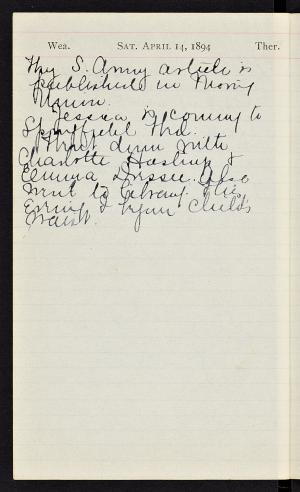 Wea. SAT. APRIL 14, 1894 Ther.
My S. Army article is
published in Morning
Union.
Jessica is coming to
Springfield Wed.
Went down with
Charlotte Haskins &
Emma Also
went to Library this
Evening &